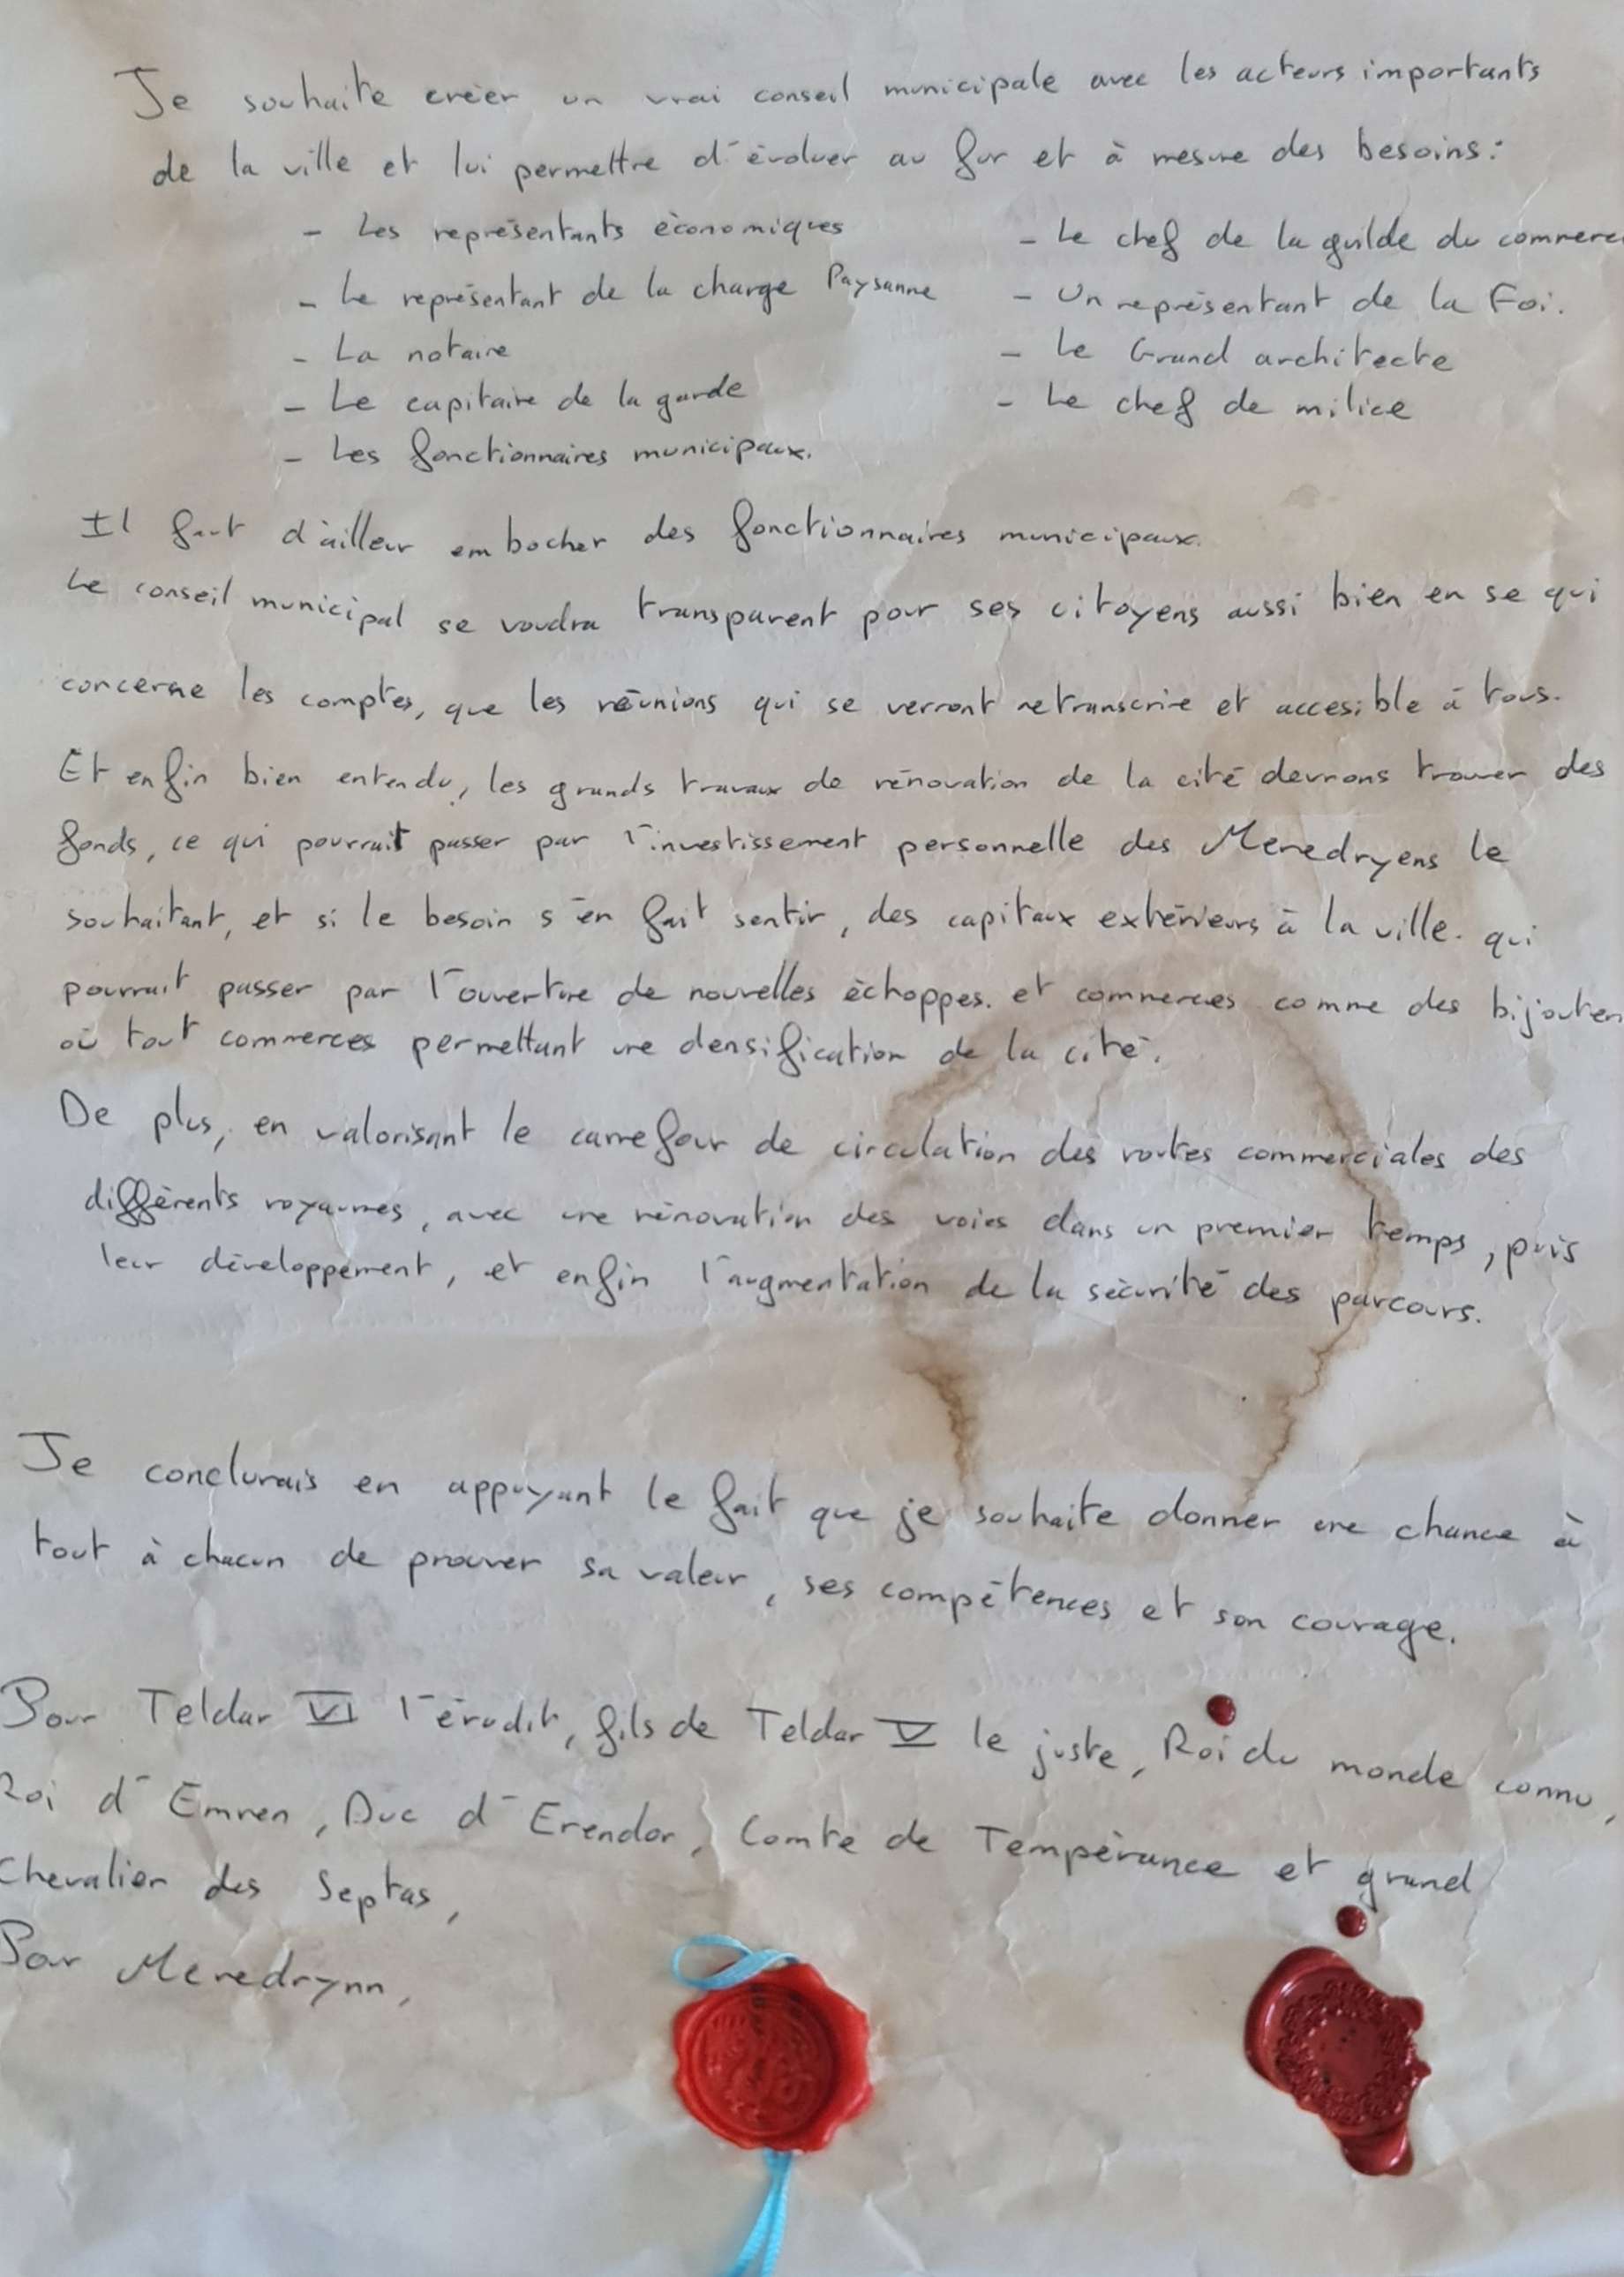 Je souhaite créer un vrai conseil municipale avec les acteurs importants
de la ville et lui permettre d'évoluer au fur et à mesure des besoins:
- Les représentants économiques
- Le représentant de la charge Paysanne
- La notaire
- Le capitaire de la garde
- Les fonctionnaires municipaux.
- Le chef de la guilde du commerc
- Un représentant de la Foi.
- Le Grand architecte
- Le chef de milice
Il faut d'ailleur embocher des fonctionnaires municipaux.
Le conseil municipal se voudra transparent pour ses citoyens aussi bien en se qui
concerne les comptes, que les réunions qui se verront retranscrire et accesible à tous.
Et enfin bien entendu, les grands travaux de rénovation de la cité devrons trouver des
fonds, ce qui pourrait passer par l'investissement personnelle des Meredryens le
souhaitant, et si le besoin s'en fait sentir, des capitaux extérieurs à la ville. qui
pourrait passer par l'ouverture de nouvelles échoppes. et commerces comme des bijouter
où tout commerces permettant une densification de la cité.
De plus, en valorisant le carrefour de circulation des routes commerciales des
différents royaumes, avec une rénovation des voies dans un premier temps, puis
leur développement, et enfin l'augmentation de la sécurité des parcours.
Je conclurais en appuyant le fait que je souhaite donner une chance à
tout à chacun de prouver sa valeur, ses compétences et son courage.
Pour Teldar VI l'érudit, fils de Teldar V le juste, Roi du monde connu,
Roi d'Emren, Duc d'Erendor, Comte de Tempérance et grand
Chevalier des Septas,
Pour Meredrynn,